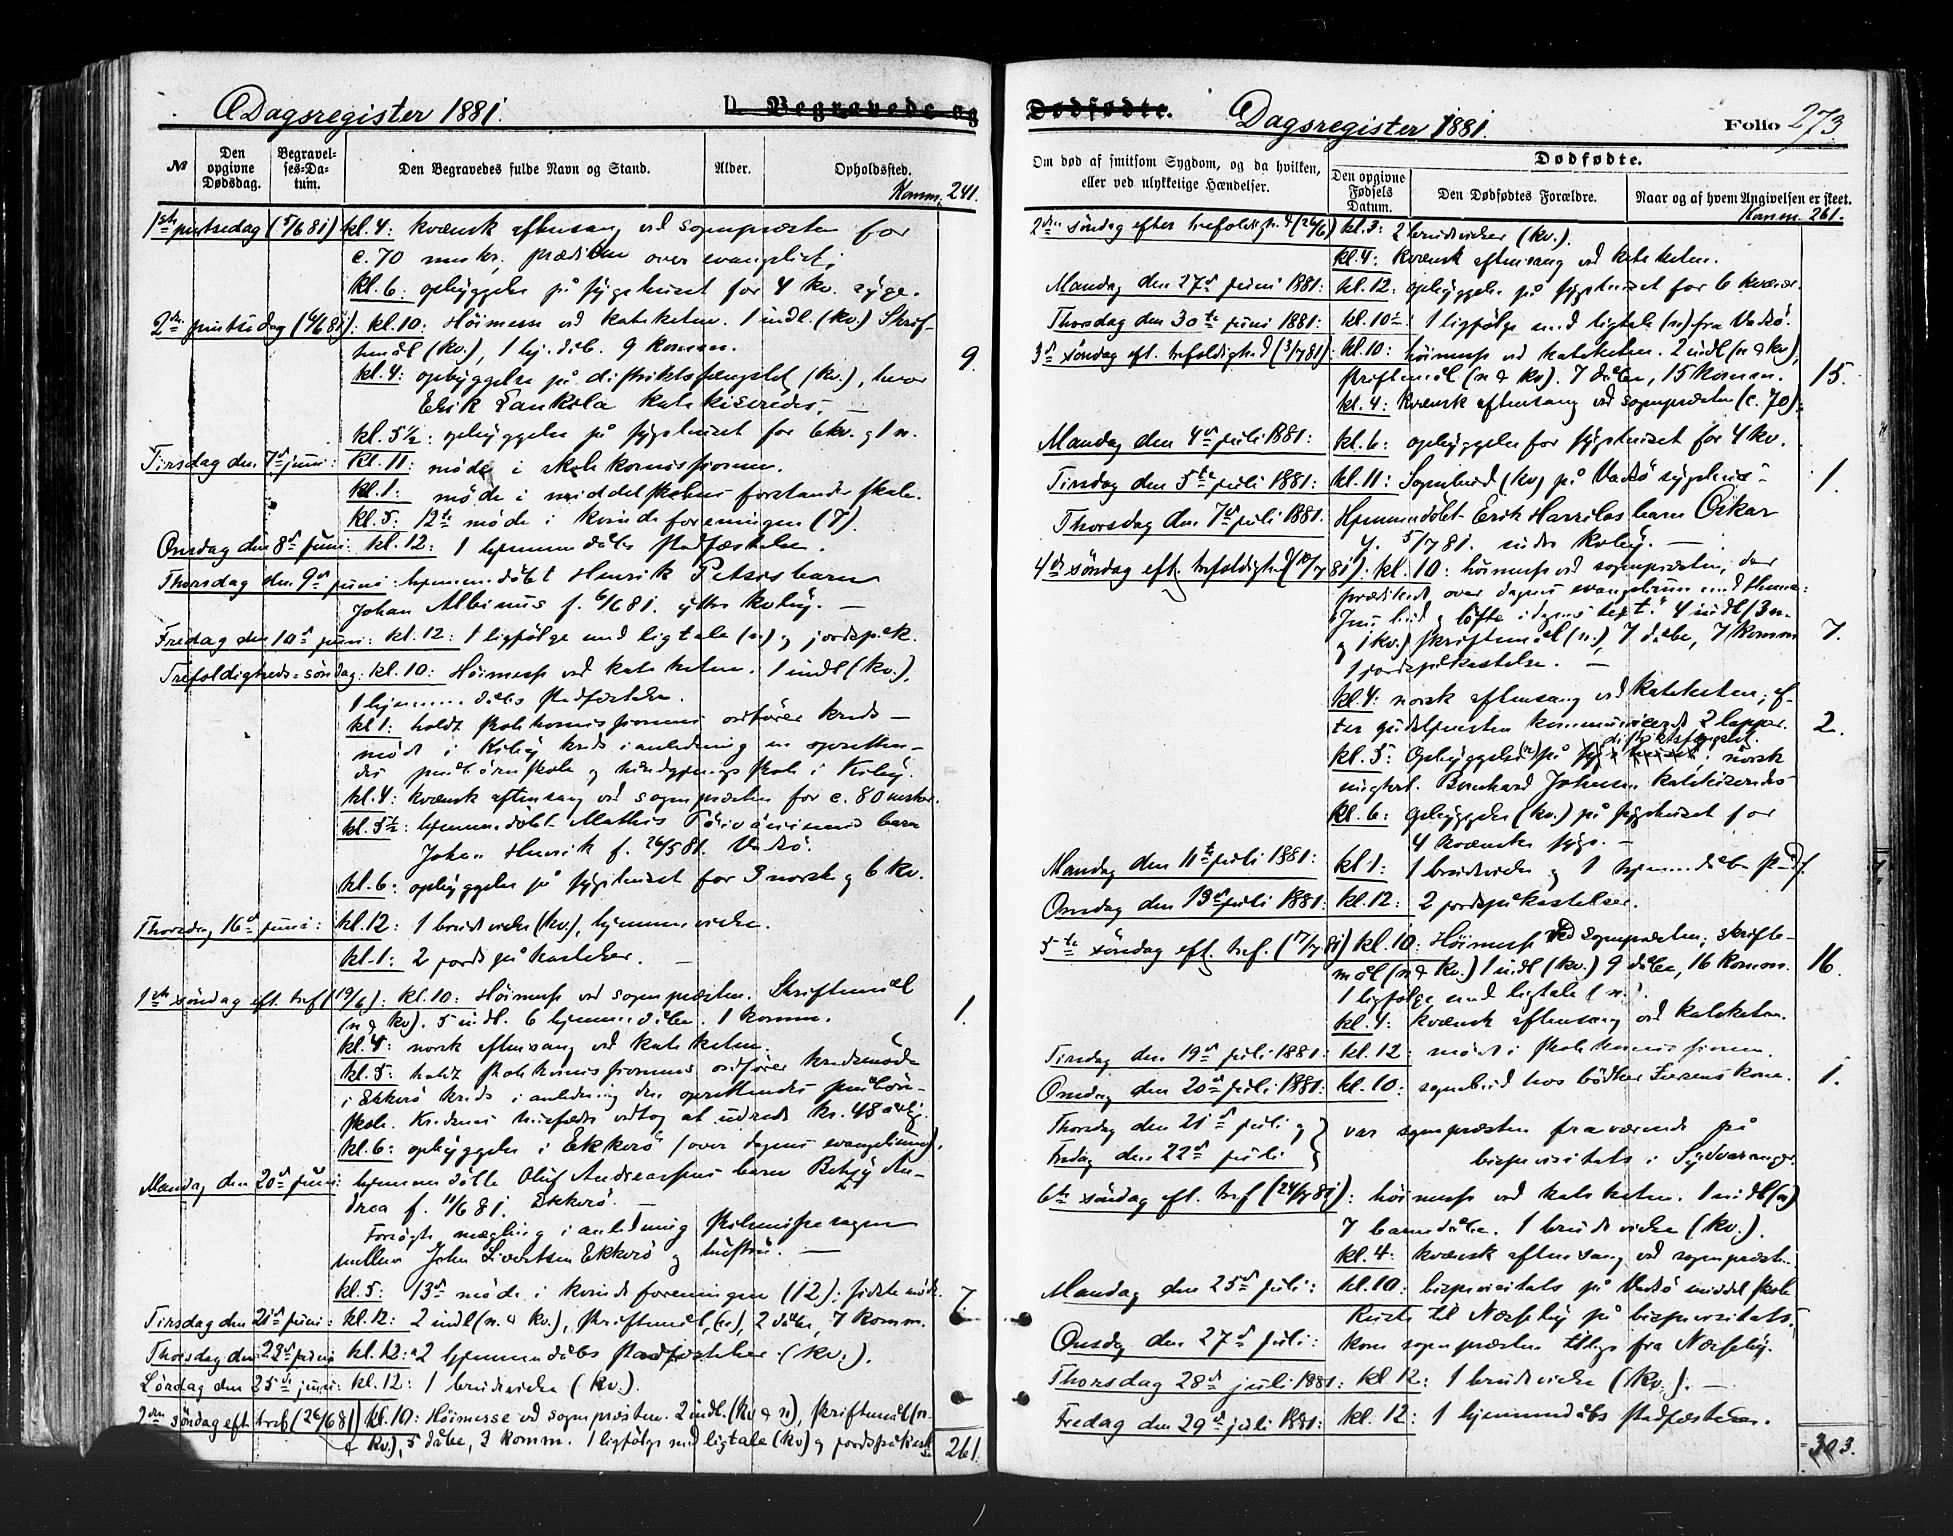 Dagsregister 1881.
D. Begravede og
№
Den opgivne Dødsdag.
Begravelses-Datum.
Den Begravedes fulde Navn og Stand.
Alder.
Opholdssted.
Komm. 241.
1ste pintsedag (5/6 81) kl. 4: kvænsk aftensang ved sognepræsten for
c. 70 mskr, prædiken over evangeliet;
kl. 6: opbyggelse på sygehuset for 4 kv. syge.
2den pintsedag (6/6 81): kl. 10: Høimesse ved kateketen. 1 indl. (kv.) Skrif-
temål (kv.), 1 hj. dåb. 9 komm. 9.
kl. 4: opbyggelse på distriktsfængslet (kv.), hvor
Erik Lankila katekiseredes. —
kl. 5½: opbyggelse på sygehuset for 6 kv. og 1 n.
Tirsdag den 7de juni: kl. 11: møde i skolekommissionen.
kl. 1: møde i middelskolens forstanderskab.
kl. 5: 12te møde i kvindeforeningen (7).
Onsdag den 8de juni: kl. 12: 1 hjemmedåbs stadfæstelse.
Thorsdag den 9de juni: hjemmedøbt Henrik Petsos barn
Johan Albinus f. 6/6 81. ytre Kiby. —
Fredag den 10de juni: kl. 12: 1 ligfølge med ligtale (n.) og jordspåk.
Trefoldigheds-søndag: kl. 10: Høimesse ved kateketen. 1 indl (kv.),
1 hjemmedåbs stadfæstelse.
kl 1: holdt skolekommissionens ordfører kreds-
møde i Kiby kreds i anledning en opretten-
de småbørnskole og håndgjerningsskole i Kiby.
kl. 4: kvænsk aftensang ved sognepræsten for c. 80 mskr.
kl. 5½: hjemmedøbt Mathis barn
Johan Henrik f. 26/5 81. Vadsø.
kl. 6: opbyggelse på sygehuset for 3 norske og 6 kv.
Thorsdag 16de juni: kl. 12: 1 brudevielse (kv.), hjemmevielse.
kl. 1: 2 jordspåkastelser. —
1ste søndag eft. tref (19/6): kl. 10: Høimesse ved sognepræsten. Skriftemål
(n & kv). 5 indl. 6 hjemmedåbe. 1 komm. 1.
kl. 4: norsk aftensang ved kateketen.
kl. 5: holdt skolekommissionens ordfører kredsmøde
i Ekkerø kreds i anledning den oprettendes småbørn-
skole. Kredsens husfædre vedtog at udrede kr. 48 årlig.
kl. 6: opbyggelse i Ekkerø (over dagens evangelium).
Mandag den 20de juni: hjemmedøbte Oluf Andreassens barn Betzy An-
drea f. 11/6 81. Ekkerø. —
Forsøgte mægling i anledning skilsmissesagen
mellem John Sivertsen Ekkerø og hustru. —
kl. 5: 13de møde i kvindeforeningen (12): sidste møde.
Tirsdag den 21de juni: kl. 12: 2 indl (n. & kv.), skriftemål, (n), 2 dåbe, 7 komm. 7.
Thorsdag den 23de juni kl. 12: 2 hjemmedåbs stadfæstelser. (kv.).
Lørdag den 25de juni: kl. 12: 1 brudevielse (kv.).
2den søndag eft. tref (26/6 81) kl. 10: Høimesse ved sognepræsten. 2 indl. (kv & n), skriftemål (n.
& kv), 5 dåbe, 3 komm. 1 ligfølge med ligtale (kv) og jordspåkastelse
261.
Dødfødte.
Dagsregister 1881.
Folio 273
Om død af smitsom Sygdom, og da hvilken, eller ved ulykkelige Hændelser.
Dødfødte.
Den opgivne Fødsels Datum.
Den Dødfødtes Forældre.
Naar og af hvem Angivelsen er skeet.
Komm. 261.
2den søndag efter trefoldigh. (26/6) kl. 3: 2 brudevielser (kv.).
kl. 4: kvænsk aftensang ved kateketen.
Mandag den 27de juni 1881: kl. 12: opbyggelse på sygehuset for 6 kvæner.
Thorsdag den 30te juni 1881: kl. 10½ 1 ligfølge med ligtale (n) fra Vadsø.
3de søndag eft. trefoldighed (3/7 81): kl. 10: høimesse ved kateketen. 2 indl (n & kv),
skriftemål (n & kv). 7 dåbe, 15 komm. 15.
kl. 4: kvænsk aftensang ved sognepræsten (c. 70).
Mandag den 4de juli 1881: kl. 6: opbyggelse for sygehuset for 4 kv.
Tirsdag den 5te juli 1881: kl. 11: Sognebud (kv) på Vadsø sygehus 1.
Thorsdag den 7de juli 1881. Hjemmedøbt Erik Harrilas barn Oskar
f. 5/7 81. indre Kiby. —
4de søndag eft. trefoldighed (10/7 81): kl. 10: høimesse ved sognepræsten, der
prædikede over dagens evangelium med thema:
"Jesu bud og løfte i dagens text." 4 indl (3 n
og 1 kv.) skriftemål (n.), 7 dåbe, 7 komm 7.
1 jordspåkastelse. —
kl. 4: norsk aftensang ved kateketen; ef-
ter gudstjenesten kommunicerede 2 lapper. 2.
kl. 5: Opbyggelse (n) på distriktsfængslet. norsk
Bernhard Johnsen katekiseredes
kl. 6: opbyggelse (kv.) på sygehuset for
4 kvænske syge. —
Mandag den 11te juli 1881: kl 1: 1 brudevielse og 1 hjemmedåbs stadf.
Onsdag den 13de juli 1881: kl. 12: 2 jordspåkastelser.
5te søndag eft. tref. (17/7 81) kl. 10: Høimesse ved sognepræsten; skrifte-
mål (n & kv.) 1 indl (kv.) 9 dåbe, 16 komm. 16.
1 ligfølge med ligtale (n.).
kl. 4: kvænsk aftensang ved kateketen.
Tirsdag den 19de juli 1881: kl. 12: møde i skolekommissionen.
Onsdag den 20de juli 1881: kl. 10: sognebud hos bødker Iversens kone. 1.
Thorsdag den 21de juli og
Fredag den 22de juli
var sognepræsten fraværende på
bispevisitats i Sydvaranger.
6te søndag eft. tref (24/7 81): høimesse ved kateketen. 1 indl (n)
7 barnedåbe. 1 brudevielse (kv.).
kl. 4: kvænsk aftensang ved sognepræsten.
Mandag den 25de juli: kl. 10: bispevisitats på Vadsø middelskole
Reiste til Næsseby på bispevisitats.
Onsdag den 27de juli: kom sognepræsten tilbage fra Næsseby.
Thorsdag 28de juli 1881: kl 12: 1 brudevielse (kv.). —
Fredag den 29de juli 1881: kl. 12: 1 hjemmedåbs stadfæstelse.
303.